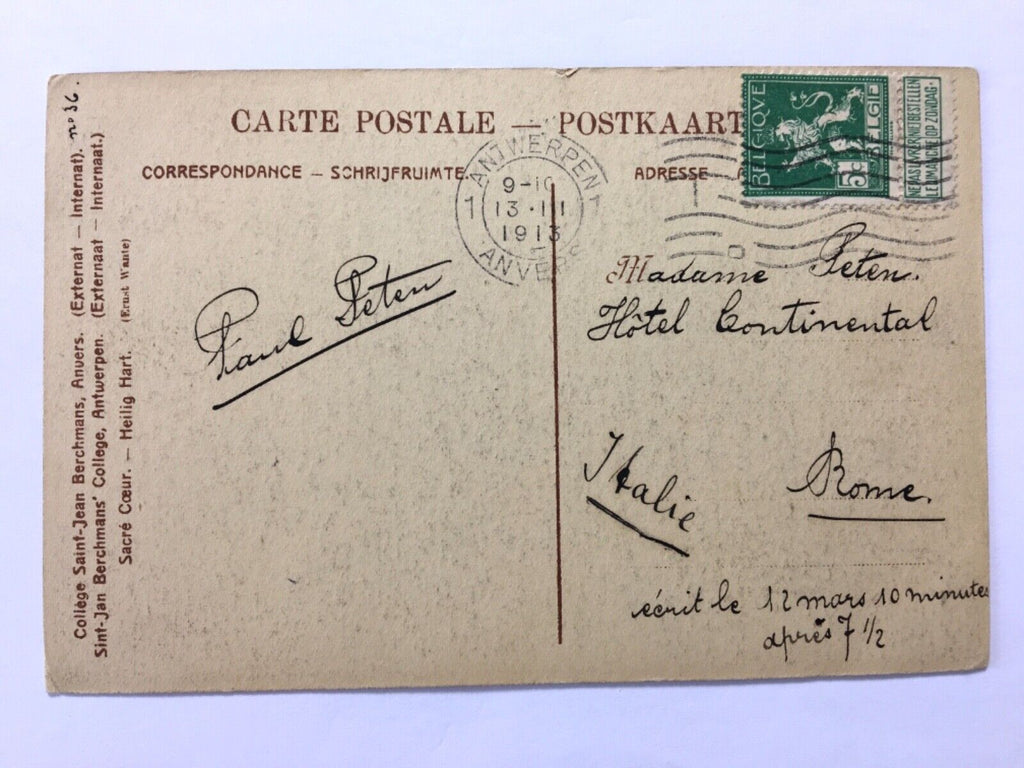 nº 36.
Collège Saint-Jean Berchmans, Anvers. (Externat — Internat).
Sint-Jan Berchmans' College, Antwerpen. (Externaat — Internaat.)
Sacré Cœur. — Heilig Hart. (Ernest Wante)
CARTE POSTALE — POSTKAART
CORRESPONDANCE — SCHRIJFRUIMTE
ADRESSE — A
ANTWERPEN 1
1
9-10
13 · III
1913
ANVERS
BELGIQVE
BELGIË
5c
NE PAS LIVRER LE DIMANCHE
NIET BESTELLEN OP ZONDAG
Paul Peten
Madame Peten.
Hôtel Continental
Italie
Rome.
écrit le 12 mars 10 minutes
après 7 1/2